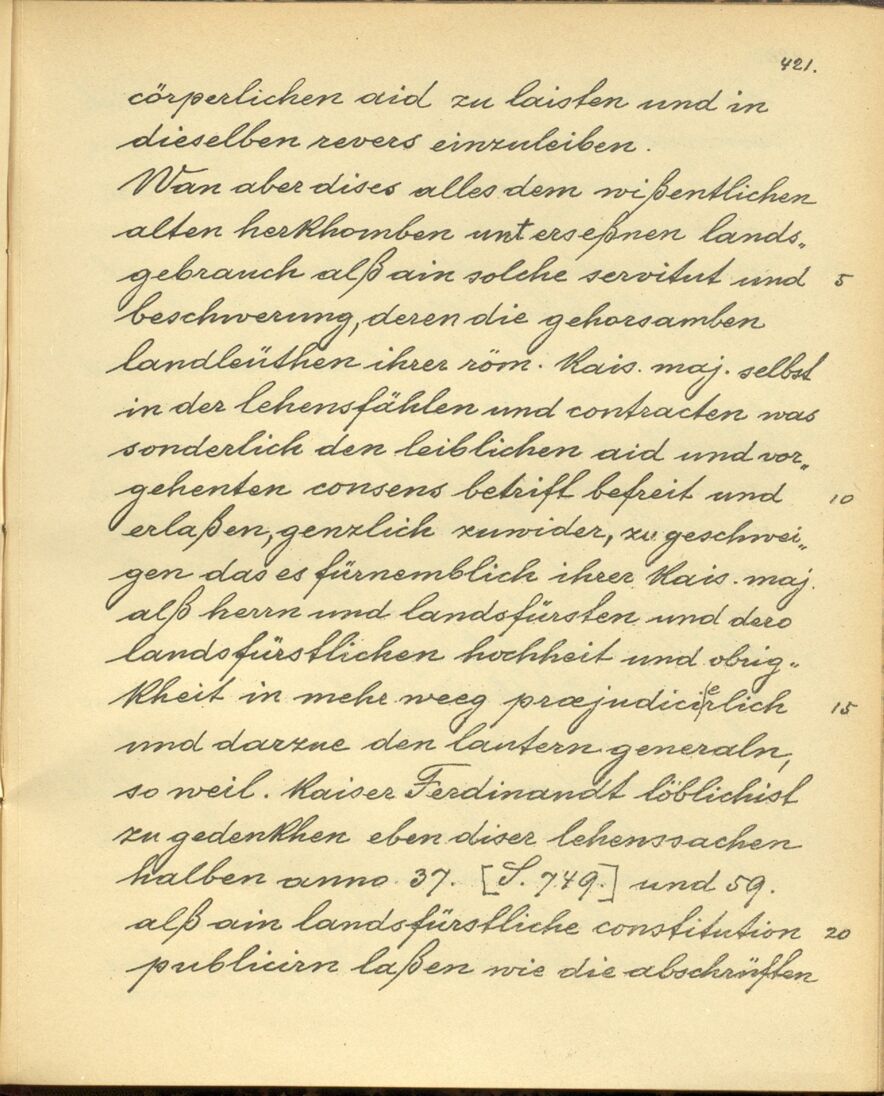 421.
cörperlichen aid zu laisten und in
dieselben revers einzuleiben.
Wan aber dises alles dem wißentlichen
alten herkhomben unterseßnen lands„
gebrauch alß ain solche servitut und 5
beschwerung, deren die gehorsamben
landleüthen ihrer röm. Kais. maj. selbst
in der lehensfählen und contracten was
sonderlich den leiblichen aid und vor„
gehenten consens betrift befreit und 10
erlaßen, genzlich zuwider, zu geschwei„
gen das es fürnemblich ihrer Kais. maj.
alß herrn und landsfürsten und dero
landsfürstlichen hochheit und obrig„
kheit in mehr weeg præjudicierlich 15
und darzue den lautern generaln,
so weil. Kaiser Ferdinandt löblichist
zu gedenkhen eben diser lehenssachen
halben anno 37. [S. 749.] und 59.
alß ain landsfürstliche constitution 20
publicirn laßen wie die abschrüften